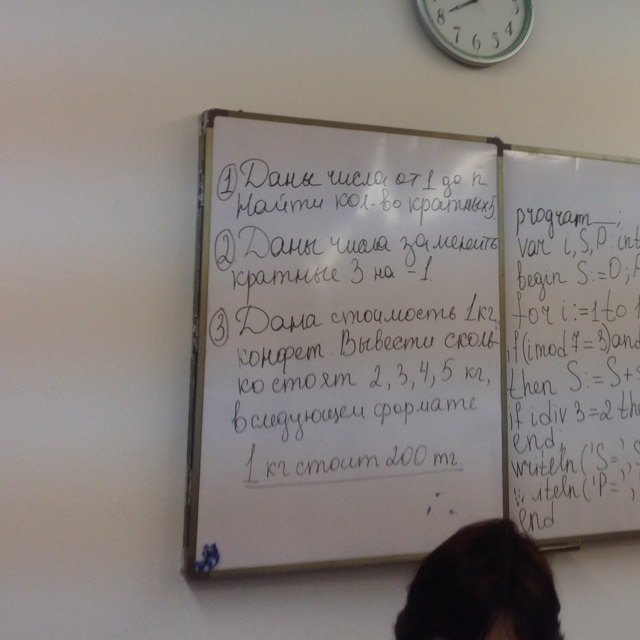 ① Даны числа от 1 до n
Найти кол-во кратных 5
② Даны числа заменить
кратные 3 на -1.
③ Дана стоимость 1 кг.
конфет. Вывести сколь-
ко стоят 2, 3, 4, 5 кг,
в следующем формате
1 кг стоит 200 тг.
program __;
var i, S, P: int
begin S:=0; P
for i:=1 to
if (i mod 7=3) and
then S:=S+
if i div 3=2 the
end;
writeln('S=',
writeln('P=',
end.
8
7
6
5
4